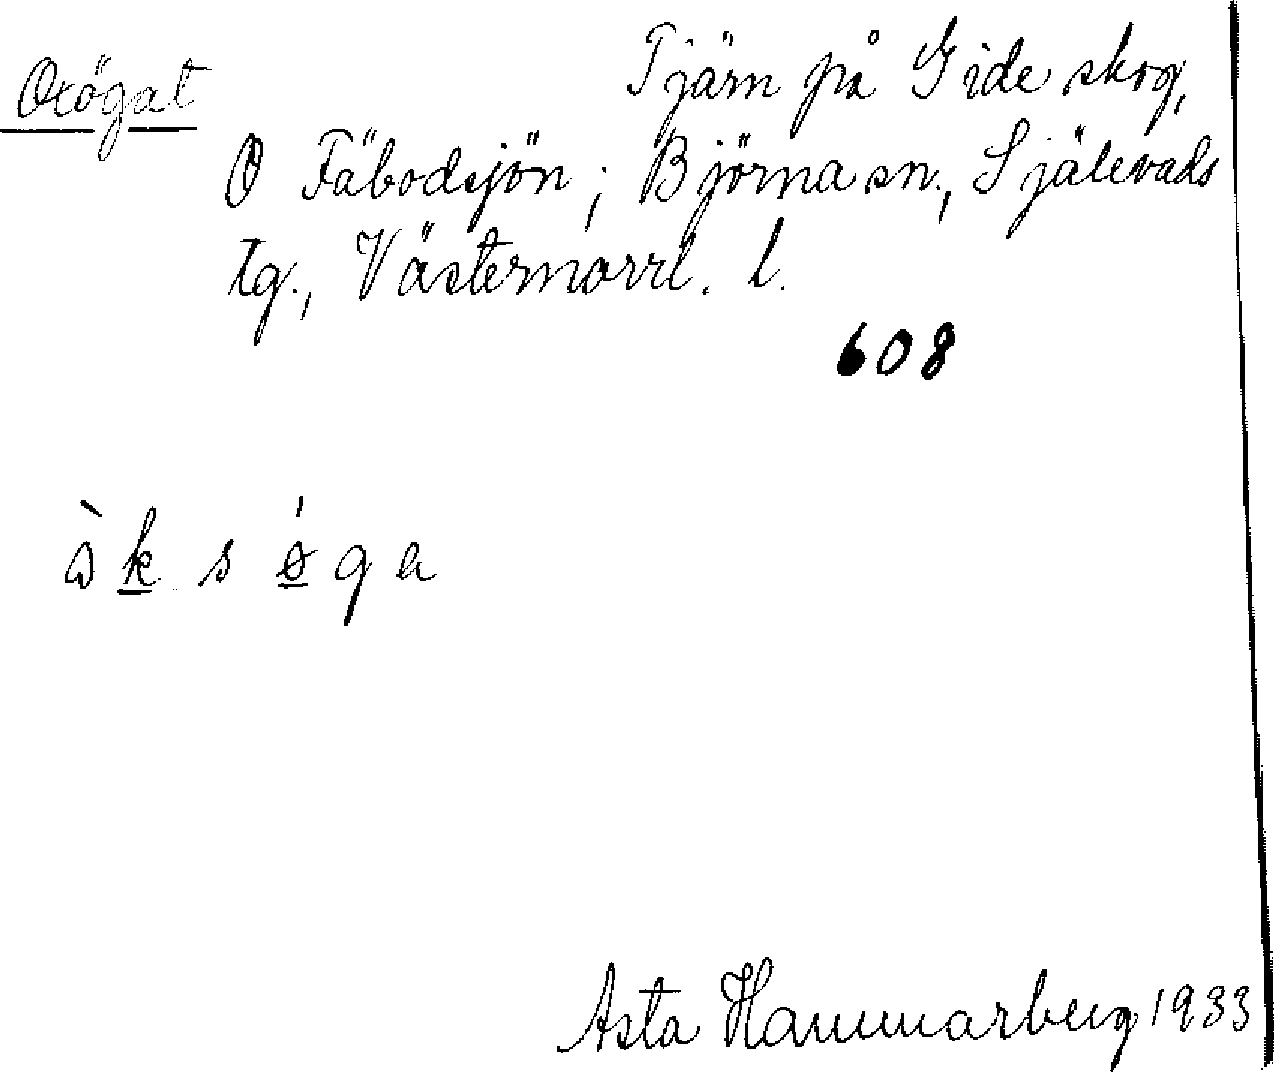 Oxögat
Tjärn på Gide skog,
O Fäbodsjön; Björna sn., Själevads
tg., Västernorrl. l.
608
ò k s ǿ g a
Asta Hammarberg 1933